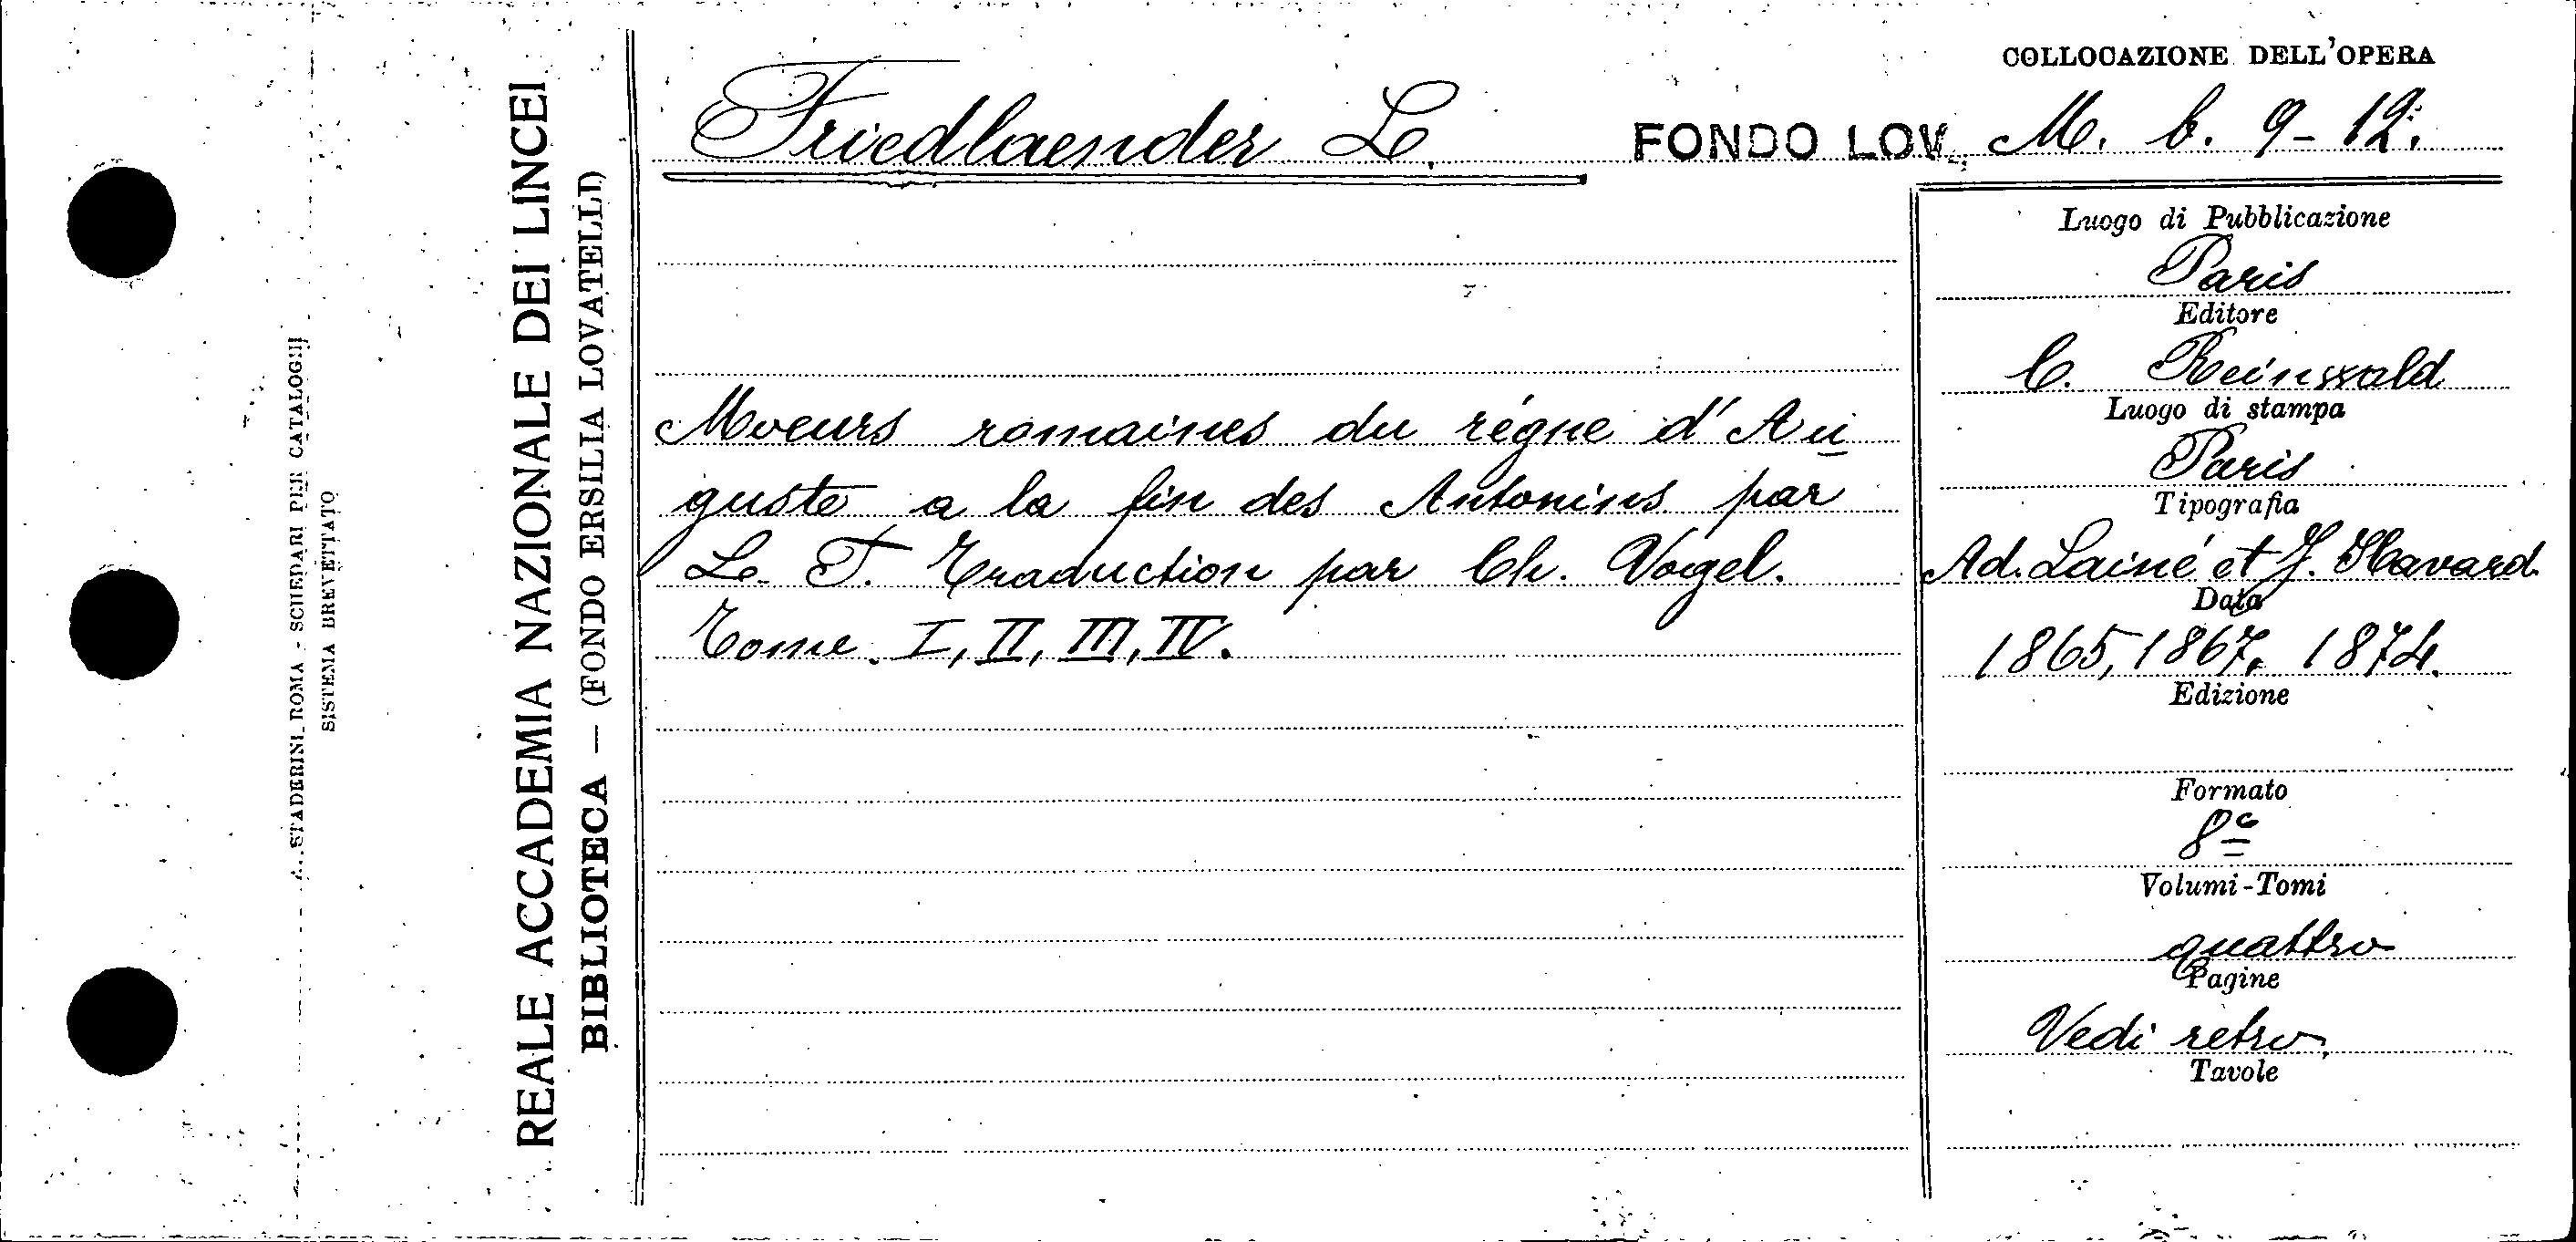 A. STADERINI_ROMA - SCHEDARI PER CATALOGHI
SISTEMA BREVETTATO
REALE ACCADEMIA NAZIONALE DEI LINCEI
BIBLIOTECA — (FONDO ERSILIA LOVATELLI)
COLLOCAZIONE DELL'OPERA
Friedlaender L. FONDO LOV. M. b. 9-12.
Luogo di Pubblicazione
Paris
Editore
C. Reinwald
Luogo di stampa
Paris
Tipografia
Ad. Lainé et J. Havard
Data
1865, 1867, 1874.
Edizione
Formato
8º
Volumi-Tomi
quattro
Pagine
Vedi retro
Tavole
Moeurs romaines du règne d'Au
guste a la fin des Antonins par
L. F. Traduction par Ch. Vogel.
Tome. I, II, III, IV.